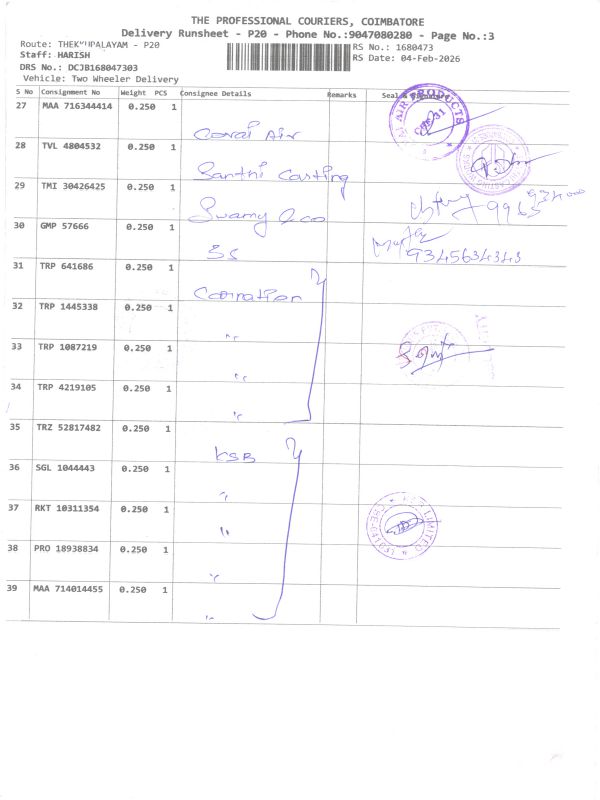 THE PROFESSIONAL COURIERS, COIMBATORE
Delivery Runsheet - P20 - Phone No.:9047080280 - Page No.:3
Route: THEKKUPALAYAM - P20
Staff: HARISH
DRS No.: DCJB168047303
Vehicle: Two Wheeler Delivery
RS No.: 1680473
RS Date: 04-Feb-2026
S No Consignment No Weight PCS Consignee Details Remarks Seal &
27 MAA 716344414 0.250 1 Covai Air AIR PRODUCTS
28 TVL 4804532 0.250 1 Santhi Casting
29 TMI 30426425 0.250 1 Swamy
30 GMP 57666 0.250 1 SS 9345634343
31 TRP 641686 0.250 1
32 TRP 1445338 0.250 1 "
33 TRP 1087219 0.250 1 "
34 TRP 4219105 0.250 1 "
35 TRZ 52817482 0.250 1 KSB
36 SGL 1044443 0.250 1 "
37 RKT 10311354 0.250 1 " LIMITED
38 PRO 18938834 0.250 1 "
39 MAA 714014455 0.250 1 "